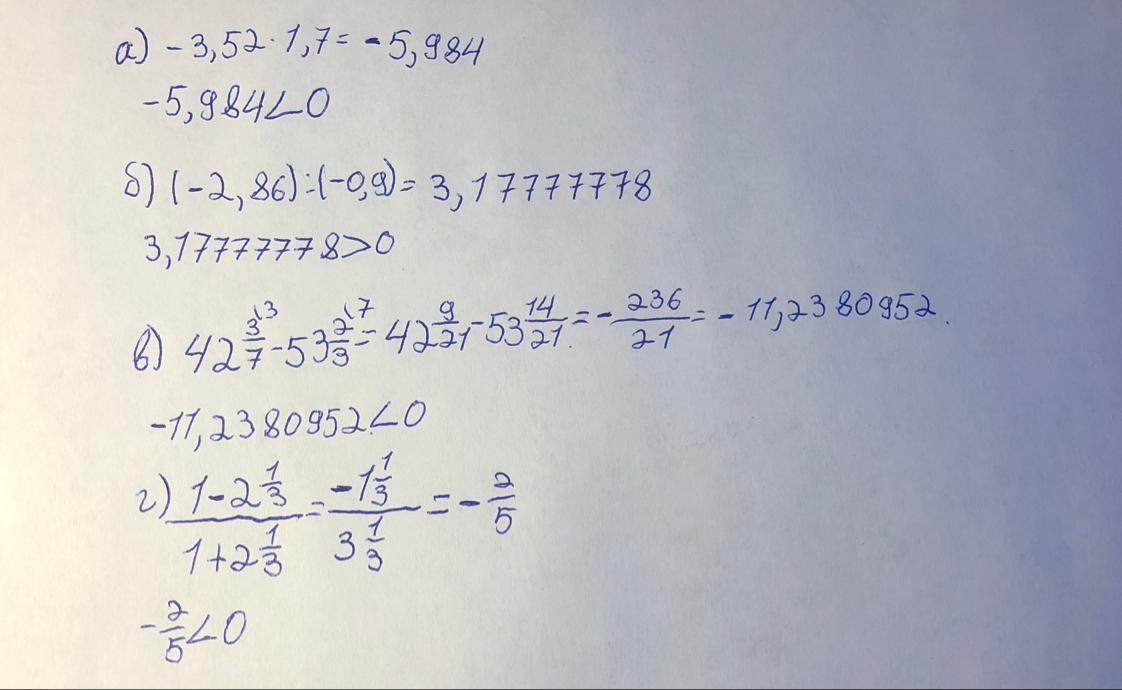 а) -3,52·1,7= -5,984
-5,984<0
б) (-2,86):(-0,9)= 3,17777778
3,17777778>0
в) 42 3/7\3 - 53 2/3\7 = 42 9/21 - 53 14/21 = - 236/21 = - 11,2380952.
-11,2380952<0
г) (1-2 1/3)/(1+2 1/3) = (-1 1/3)/(3 1/3) = - 2/5
-2/5<0